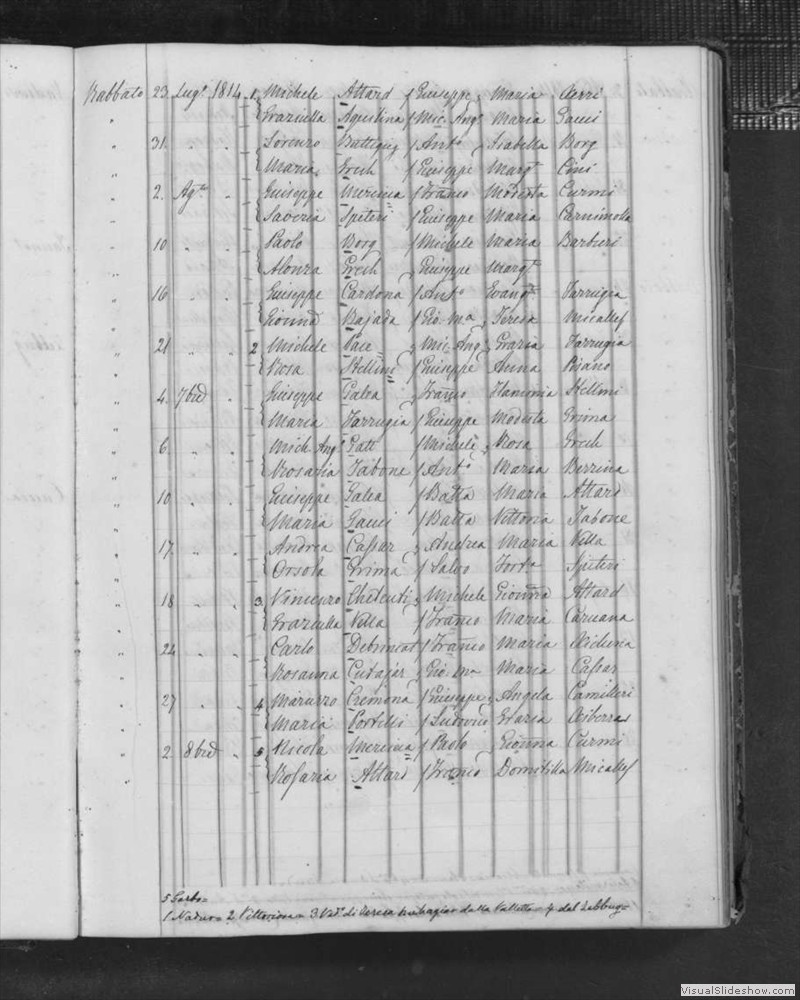 Rabbato 23 Lug.º 1814 1 Michele Attard / Giuseppe Maria
Graziulla Agustina / Mic. Ang.º Maria Gauci
31 Lorenzo Battiguj / Ant.º Isabella Borg
Maria Grech / Giuseppe Marg.ª Cini
2 Ag.to Giuseppe / Franco Modesta Curmi
Saveria Spiteri / Giuseppe Maria
10 Paolo Borg / Michele Maria Barberi
Alonza Grech Giuseppe Marg.ª
16 Giuseppe Cardona / Ant.º Evang.ª Farrugia
Gionna Bajada / Gio. Ma Teresa Micallef
21 2 Michele Pace Mic. Ang.º Grazia Farrugia
Rosa Stellini / Giuseppe Anna Pisano
4 7bre Giuseppe Galea Franco Flaminia Stellini
Maria Farrugia / Giuseppe Modesta Grima
6 Mich. Ang.º Gatt / Michele Rosa Grech
Rosaria Tabone / Ant.º Maria
10 Giuseppe Galea / Batta Maria Attard
Maria Gauci / Batta Vittoria Tabone
17 Andrea Cassar Andrea Maria Vella
Orsola Grima / Salvo Spiteri
18 3 Vincenzo Chetcuti Michele Gionna Attard
Graziulla Vella / Franco Maria Caruana
24 Carlo Debrincat / Franco Maria
Rosanna Cutajar Gio. Ma Maria Cassar
27 4 Maruzzo Cremona / Giuseppe Angela Camilleri
Maria Portelli / Ludovico Grazia
2 8bre 5 Nicola / Paolo Gionna Curmi
Rosaria Attard / Franco Domitilla Micallef
5 Garbo =
1 Nadur = 2 Vittoriosa = 3 Ved.º di Teresa della Valletta = 4 del Zebbug =
VisualSlideshow.com